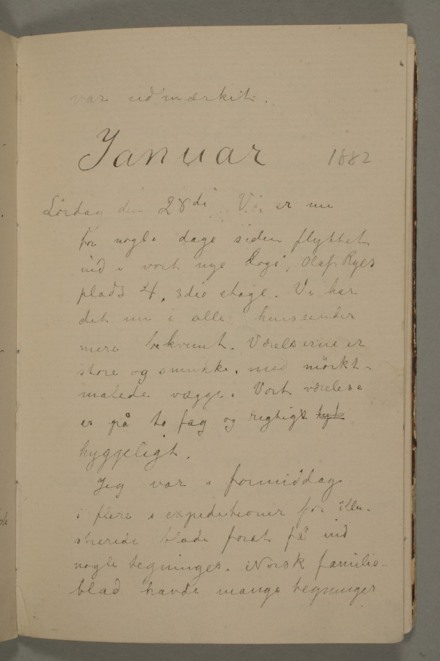 var udmærket.
Januar 1882
Lördag den 28di. Vi er nu
for nogle dage siden flyttet
ind i vort nye Logi, Olaf Ryes
plads 4, 3die etage. Vi har
det nu i alle henseender
mere bekvemt. Værelserne er
store og smukke, med mörkt-
malede vægge. Vort værelse
er på to fag og rigtigt
hyggeligt.
Jeg var i formiddag
i flere expeditioner for illu-
strerede blade forat få ind
nogle tegninger. Norsk familie-
blad havde mange tegninger